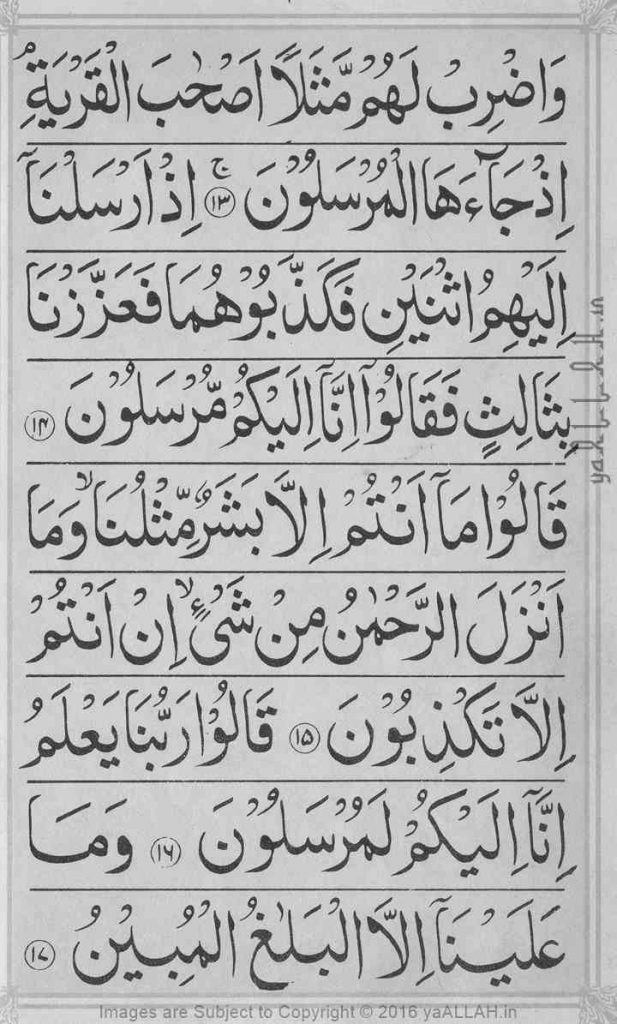 وَاضْرِبْ لَهُمْ مَّثَلًا اَصْحٰبَ الْقَرْيَةِ ۘ
اِذْ جَآءَهَا الْمُرْسَلُوْنَ ۚ ﴿۱۳﴾ اِذْ اَرْسَلْنَآ
اِلَيْهِمُ اثْنَيْنِ فَكَذَّبُوْهُمَا فَعَزَّزْنَا
بِثَالِثٍ فَقَالُوْٓا اِنَّآ اِلَيْكُمْ مُّرْسَلُوْنَ ﴿۱۴﴾
قَالُوْا مَآ اَنْتُمْ اِلَّا بَشَرٌ مِّثْلُنَا ۙ وَمَا
اَنْزَلَ الرَّحْمٰنُ مِنْ شَىْءٍ ۙ اِنْ اَنْتُمْ
اِلَّا تَكْذِبُوْنَ ﴿۱۵﴾ قَالُوْا رَبُّنَا يَعْلَمُ
اِنَّآ اِلَيْكُمْ لَمُرْسَلُوْنَ ﴿۱۶﴾ وَمَا
عَلَيْنَآ اِلَّا الْبَلٰغُ الْمُبِيْنُ ﴿۱۷﴾
yaALLAH.in
Images are Subject to Copyright © 2016 yaALLAH.in